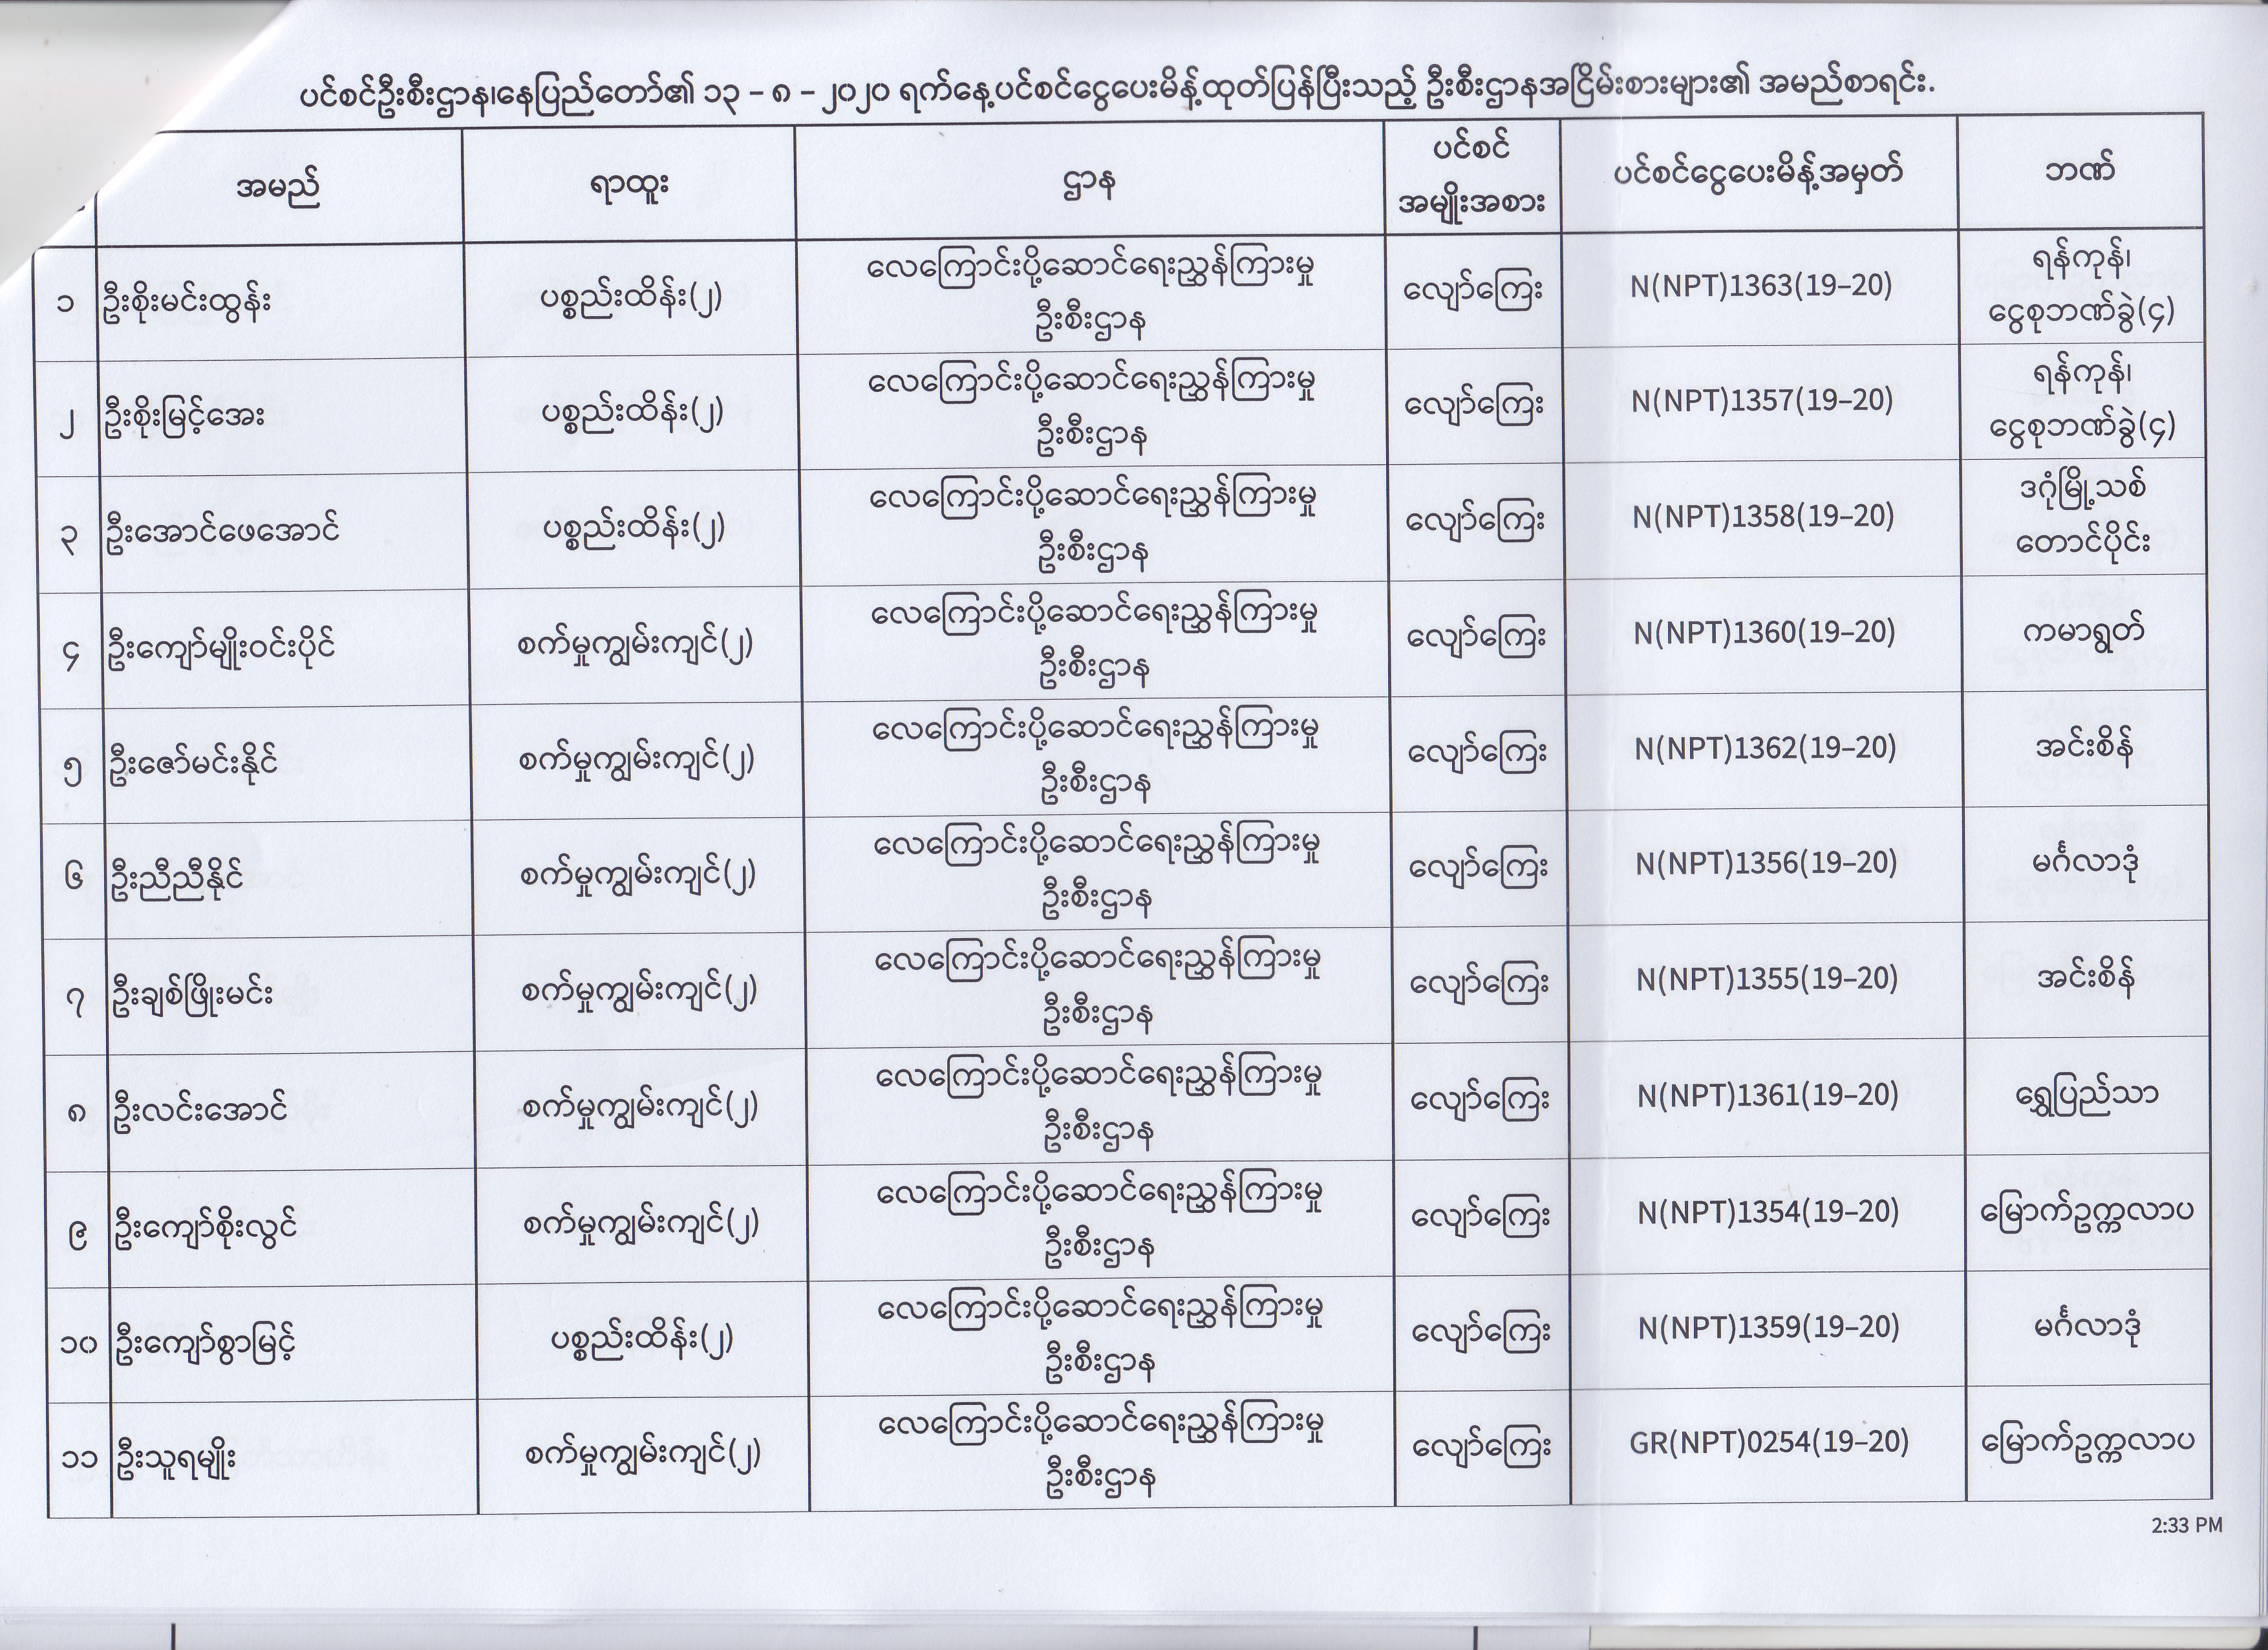 ပင်စင်ဦးစီးဌာန၊နေပြည်တော်၏ ၁၃ – ၈ – ၂၀၂၀ ရက်နေ့ပင်စင်ငွေပေးမိန့်ထုတ်ပြန်ပြီးသည့် ဦးစီးဌာနအငြိမ်းစားများ၏ အမည်စာရင်း.
အမည် ရာထူး ဌာန ပင်စင် အမျိုးအစား ပင်စင်ငွေပေးမိန့်အမှတ် ဘဏ်
၁ ဦးစိုးမင်းထွန်း ပစ္စည်းထိန်း(၂) လေကြောင်းပို့ဆောင်ရေးညွှန်ကြားမှု ဦးစီးဌာန လျော်ကြေး N(NPT)1363(19–20) ရန်ကုန်၊ ငွေစုဘဏ်ခွဲ(၄)
၂ ဦးစိုးမြင့်အေး ပစ္စည်းထိန်း(၂) လေကြောင်းပို့ဆောင်ရေးညွှန်ကြားမှု ဦးစီးဌာန လျော်ကြေး N(NPT)1357(19–20) ရန်ကုန်၊ ငွေစုဘဏ်ခွဲ(၄)
၃ ဦးအောင်ဖေအောင် ပစ္စည်းထိန်း(၂) လေကြောင်းပို့ဆောင်ရေးညွှန်ကြားမှု ဦးစီးဌာန လျော်ကြေး N(NPT)1358(19–20) ဒဂုံမြို့သစ် တောင်ပိုင်း
၄ ဦးကျော်မျိုးဝင်းပိုင် စက်မှုကျွမ်းကျင်(၂) လေကြောင်းပို့ဆောင်ရေးညွှန်ကြားမှု ဦးစီးဌာန လျော်ကြေး N(NPT)1360(19–20) ကမာရွတ်
၅ ဦးဇော်မင်းနိုင် စက်မှုကျွမ်းကျင်(၂) လေကြောင်းပို့ဆောင်ရေးညွှန်ကြားမှု ဦးစီးဌာန လျော်ကြေး N(NPT)1362(19–20) အင်းစိန်
၆ ဦးညီညီနိုင် စက်မှုကျွမ်းကျင်(၂) လေကြောင်းပို့ဆောင်ရေးညွှန်ကြားမှု ဦးစီးဌာန လျော်ကြေး N(NPT)1356(19–20) မင်္ဂလာဒုံ
၇ ဦးချစ်ဖြိုးမင်း စက်မှုကျွမ်းကျင်(၂) လေကြောင်းပို့ဆောင်ရေးညွှန်ကြားမှု ဦးစီးဌာန လျော်ကြေး N(NPT)1355(19–20) အင်းစိန်
၈ ဦးလင်းအောင် စက်မှုကျွမ်းကျင်(၂) လေကြောင်းပို့ဆောင်ရေးညွှန်ကြားမှု ဦးစီးဌာန လျော်ကြေး N(NPT)1361(19–20) ရွှေပြည်သာ
၉ ဦးကျော်စိုးလွင် စက်မှုကျွမ်းကျင်(၂) လေကြောင်းပို့ဆောင်ရေးညွှန်ကြားမှု ဦးစီးဌာန လျော်ကြေး N(NPT)1354(19–20) မြောက်ဥက္ကလာပ
၁၀ ဦးကျော်စွာမြင့် ပစ္စည်းထိန်း(၂) လေကြောင်းပို့ဆောင်ရေးညွှန်ကြားမှု ဦးစီးဌာန လျော်ကြေး N(NPT)1359(19–20) မင်္ဂလာဒုံ
၁၁ ဦးသူရမျိုး စက်မှုကျွမ်းကျင်(၂) လေကြောင်းပို့ဆောင်ရေးညွှန်ကြားမှု ဦးစီးဌာန လျော်ကြေး GR(NPT)0254(19–20) မြောက်ဥက္ကလာပ
2:33 PM